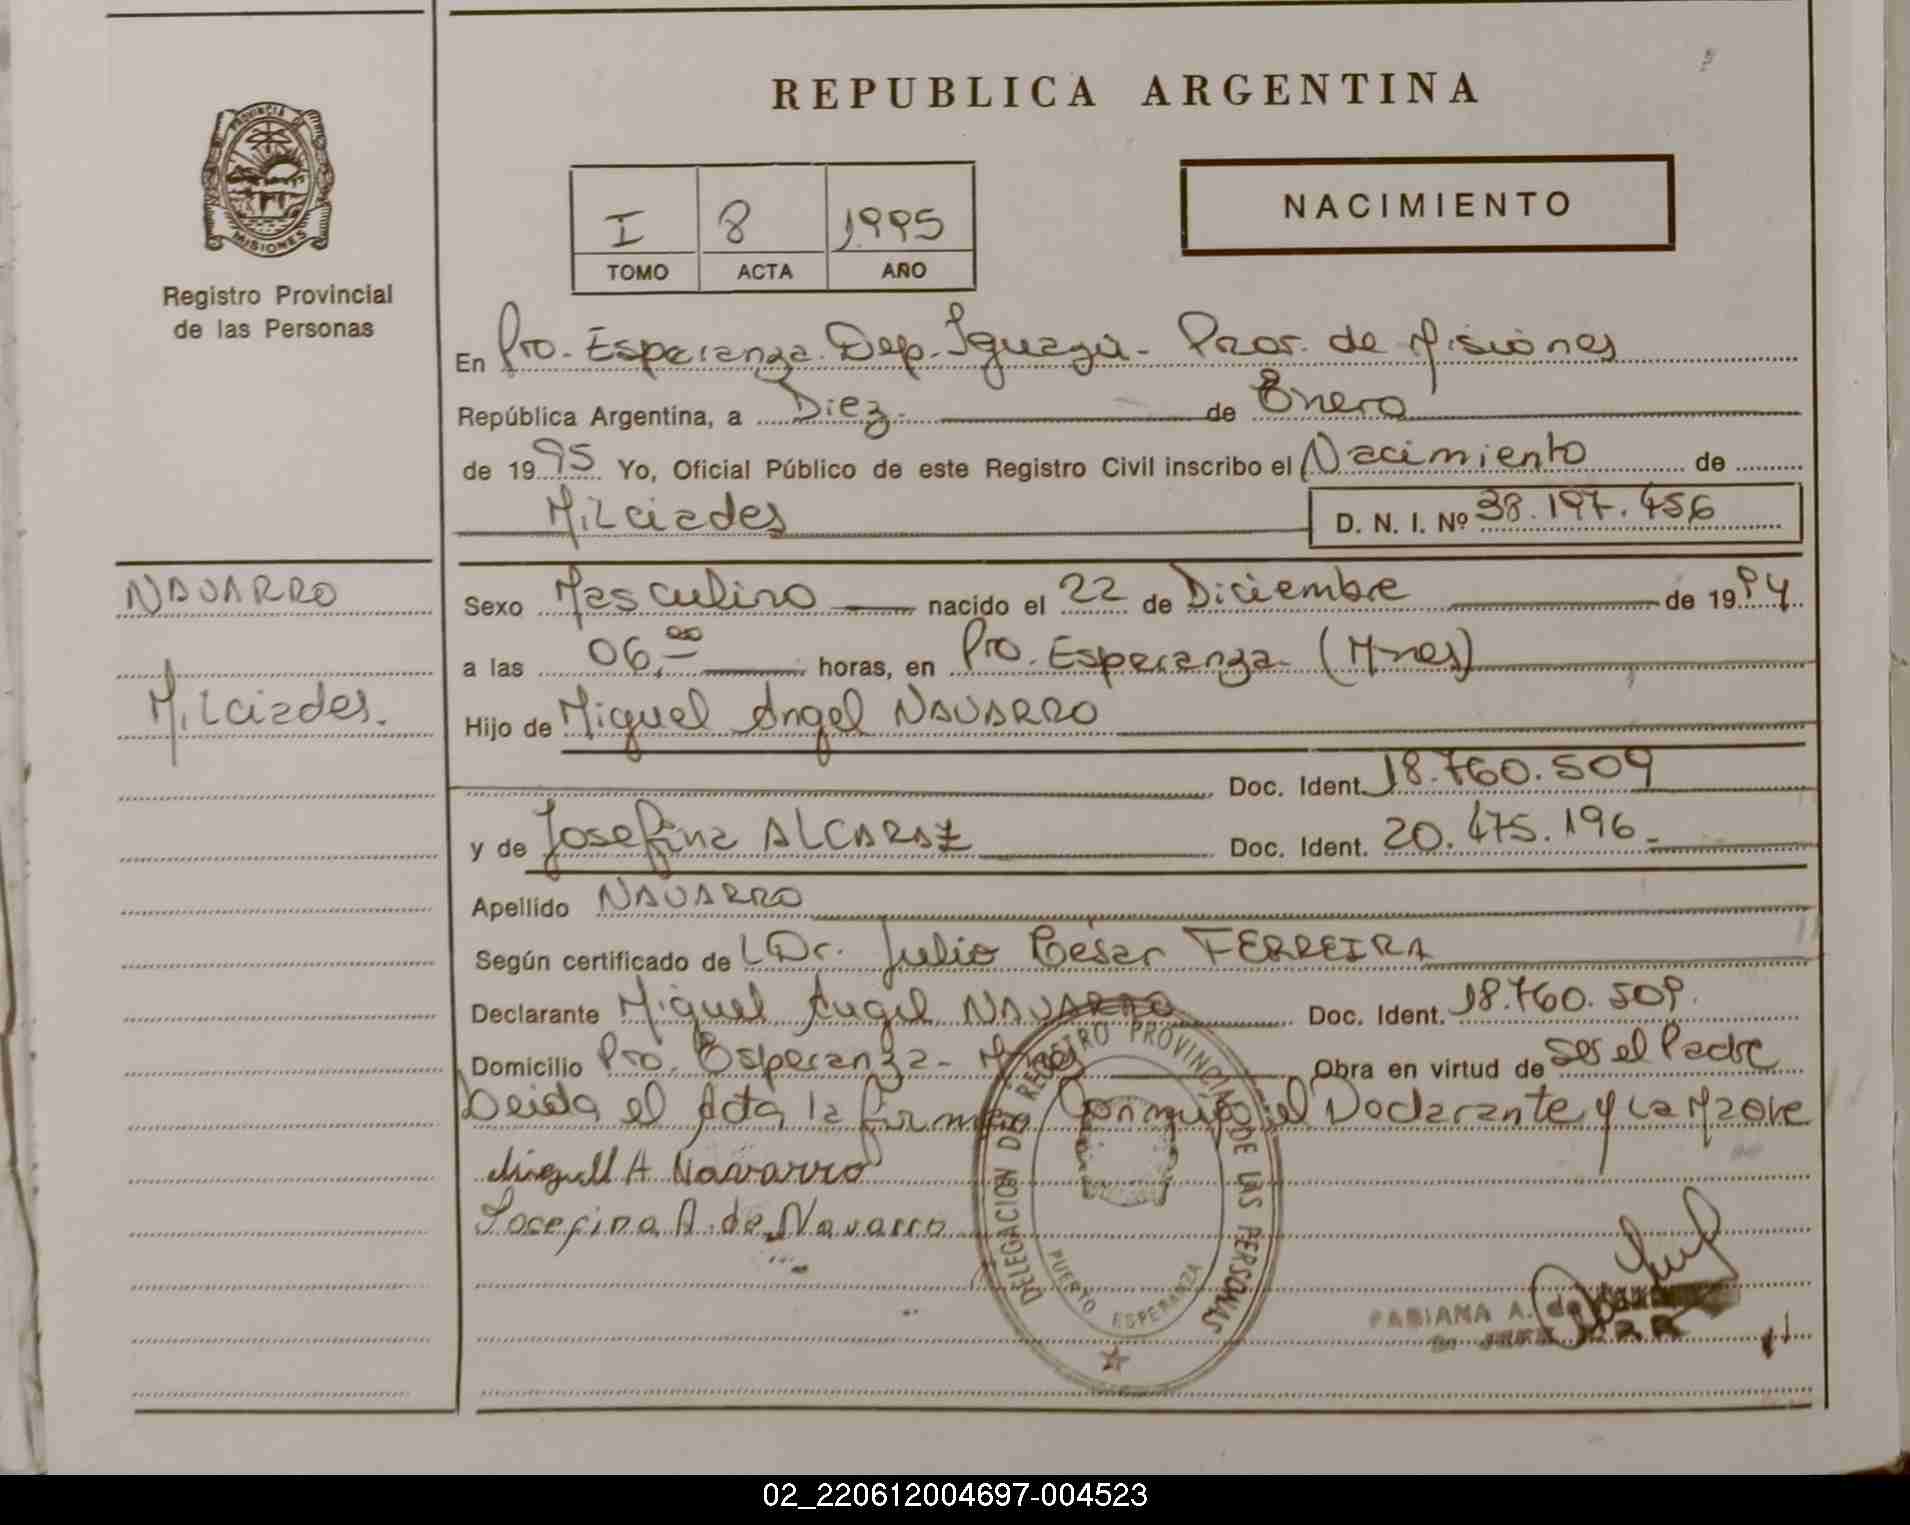 REPUBLICA ARGENTINA
PROVINCIA DE MISIONES
Registro Provincial
de las Personas
I 8 1995
TOMO ACTA AÑO
NACIMIENTO
En Pto. Esperanza. Dep. Iguazú - Prov. de Misiones
República Argentina, a Diez. de Enero
de 1995 Yo, Oficial Público de este Registro Civil inscribo el Nacimiento de
Milciades D. N. I. Nº 38.197.456
NAVARRO
Milciades.
Sexo Masculino nacido el 22 de Diciembre de 1994
a las 06.00 horas, en Pto. Esperanza - (Mnes)
Hijo de Miguel Angel NAVARRO
Doc. Ident. 18.760.509
y de Josefina ALCARAZ Doc. Ident. 20.475.196
Apellido NAVARRO
Según certificado de Dr. Julio César FERREIRA
Declarante Miguel Angel NAVARRO Doc. Ident. 18.760.509.
Domicilio Pto. Esperanza - Mnes Obra en virtud de ser el Padre
Leida el Acta la firman Conmigo el Declarante y La Madre
Miguel A Navarro
Josefina A. de Navarro
DELEGACION DEL REGISTRO PROVINCIAL DE LAS PERSONAS
PUERTO ESPERANZA
FABIANA A. de
02_220612004697-004523